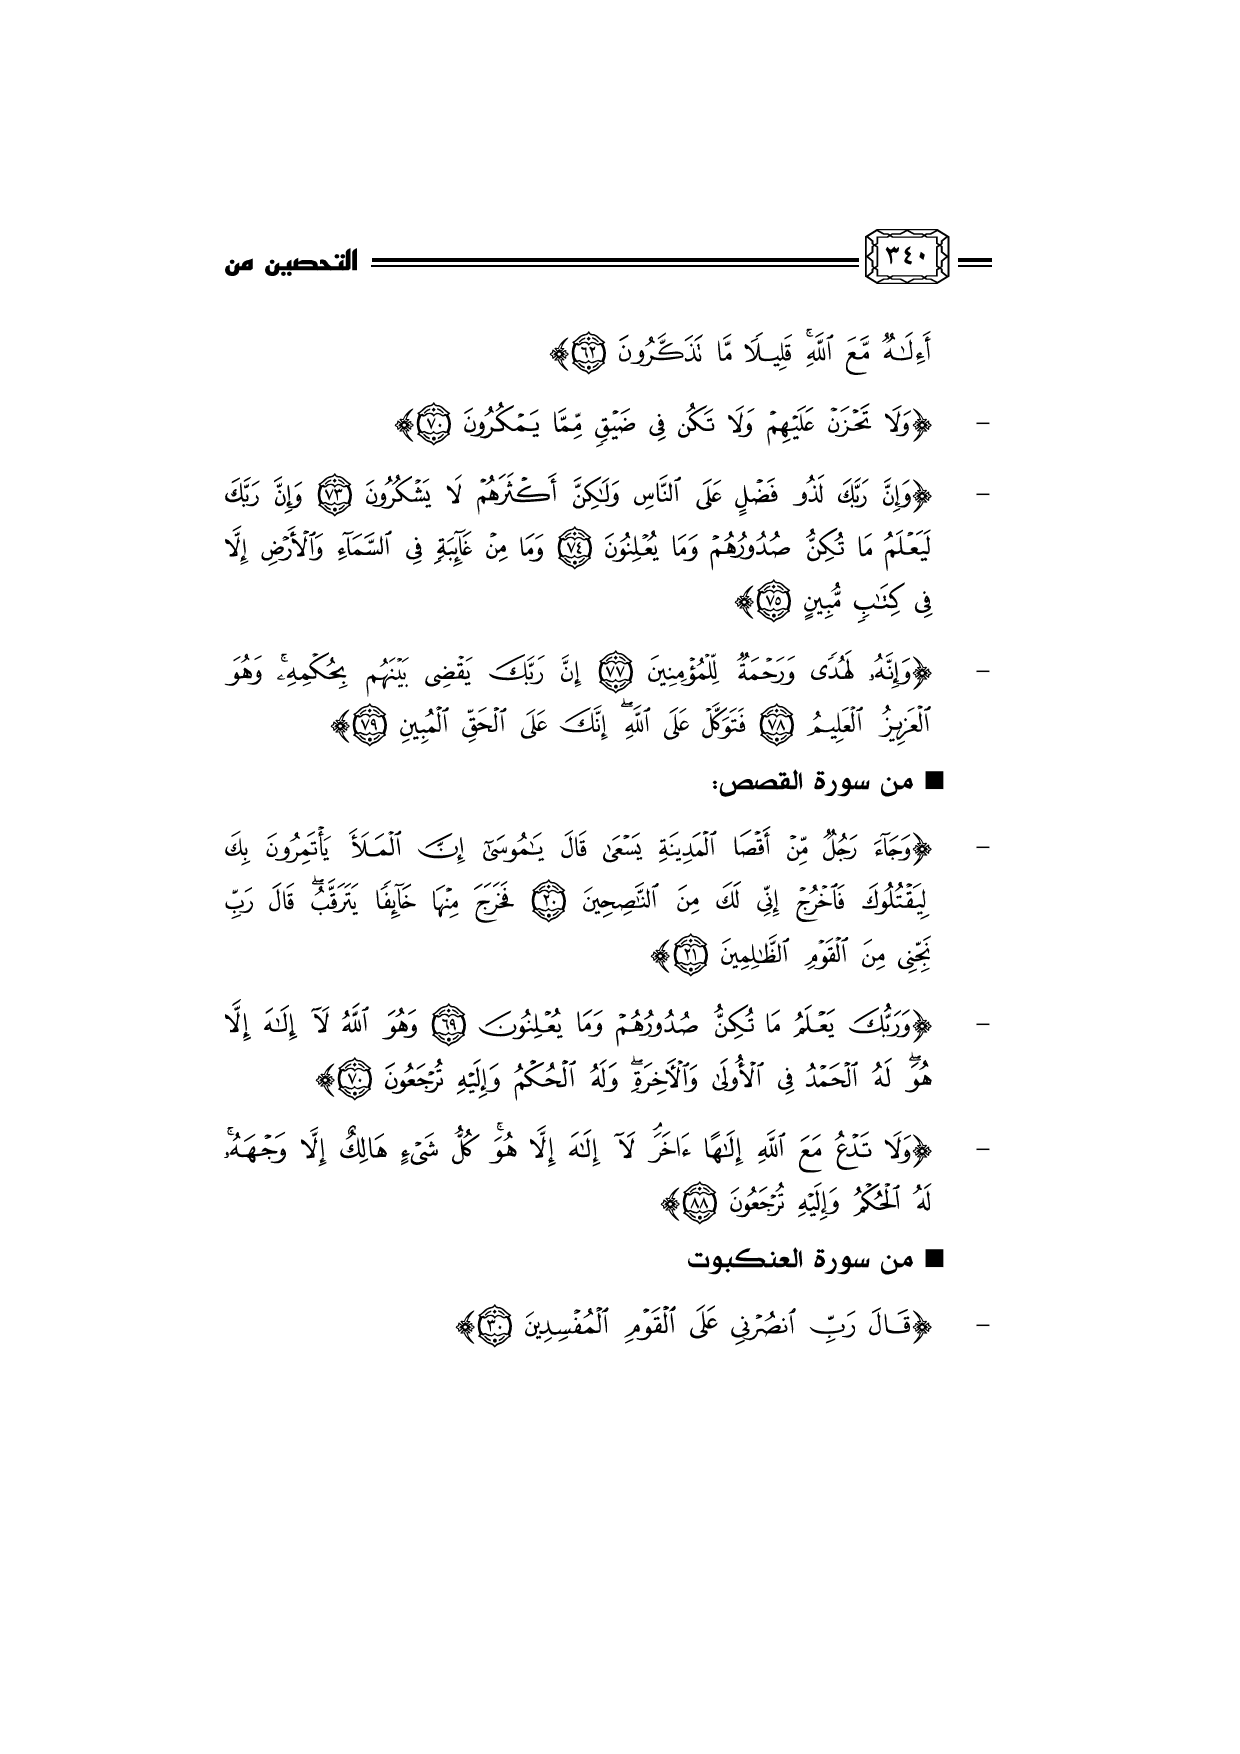 ٣٤٠ التحصين من
أَءِلَٰهٌ مَّعَ ٱللَّهِۚ قَلِيلًا مَّا تَذَكَّرُونَ ٦٢﴾
- ﴿وَلَا تَحْزَنْ عَلَيْهِمْ وَلَا تَكُن فِى ضَيْقٍ مِّمَّا يَمْكُرُونَ ٧٠﴾
- ﴿وَإِنَّ رَبَّكَ لَذُو فَضْلٍ عَلَى ٱلنَّاسِ وَلَٰكِنَّ أَكْثَرَهُمْ لَا يَشْكُرُونَ ٧٣ وَإِنَّ رَبَّكَ
لَيَعْلَمُ مَا تُكِنُّ صُدُورُهُمْ وَمَا يُعْلِنُونَ ٧٤ وَمَا مِنْ غَآئِبَةٍ فِى ٱلسَّمَآءِ وَٱلْأَرْضِ إِلَّا
فِى كِتَٰبٍ مُّبِينٍ ٧٥﴾
- ﴿وَإِنَّهُۥ لَهُدًى وَرَحْمَةٌ لِّلْمُؤْمِنِينَ ٧٧ إِنَّ رَبَّكَ يَقْضِى بَيْنَهُم بِحُكْمِهِۦۚ وَهُوَ
ٱلْعَزِيزُ ٱلْعَلِيمُ ٧٨ فَتَوَكَّلْ عَلَى ٱللَّهِۖ إِنَّكَ عَلَى ٱلْحَقِّ ٱلْمُبِينِ ٧٩﴾
■ من سورة القصص:
- ﴿وَجَآءَ رَجُلٌ مِّنْ أَقْصَا ٱلْمَدِينَةِ يَسْعَىٰ قَالَ يَٰمُوسَىٰٓ إِنَّ ٱلْمَلَأَ يَأْتَمِرُونَ بِكَ
لِيَقْتُلُوكَ فَٱخْرُجْ إِنِّى لَكَ مِنَ ٱلنَّٰصِحِينَ ٢٠ فَخَرَجَ مِنْهَا خَآئِفًا يَتَرَقَّبُۖ قَالَ رَبِّ
نَجِّنِى مِنَ ٱلْقَوْمِ ٱلظَّٰلِمِينَ ٢١﴾
- ﴿وَرَبُّكَ يَعْلَمُ مَا تُكِنُّ صُدُورُهُمْ وَمَا يُعْلِنُونَ ٦٩ وَهُوَ ٱللَّهُ لَآ إِلَٰهَ إِلَّا
هُوَۖ لَهُ ٱلْحَمْدُ فِى ٱلْأُولَىٰ وَٱلْءَاخِرَةِۖ وَلَهُ ٱلْحُكْمُ وَإِلَيْهِ تُرْجَعُونَ ٧٠﴾
- ﴿وَلَا تَدْعُ مَعَ ٱللَّهِ إِلَٰهًا ءَاخَرَۘ لَآ إِلَٰهَ إِلَّا هُوَۚ كُلُّ شَىْءٍ هَالِكٌ إِلَّا وَجْهَهُۥۚ
لَهُ ٱلْحُكْمُ وَإِلَيْهِ تُرْجَعُونَ ٨٨﴾
■ من سورة العنكبوت
- ﴿قَالَ رَبِّ ٱنصُرْنِى عَلَى ٱلْقَوْمِ ٱلْمُفْسِدِينَ ٣٠﴾